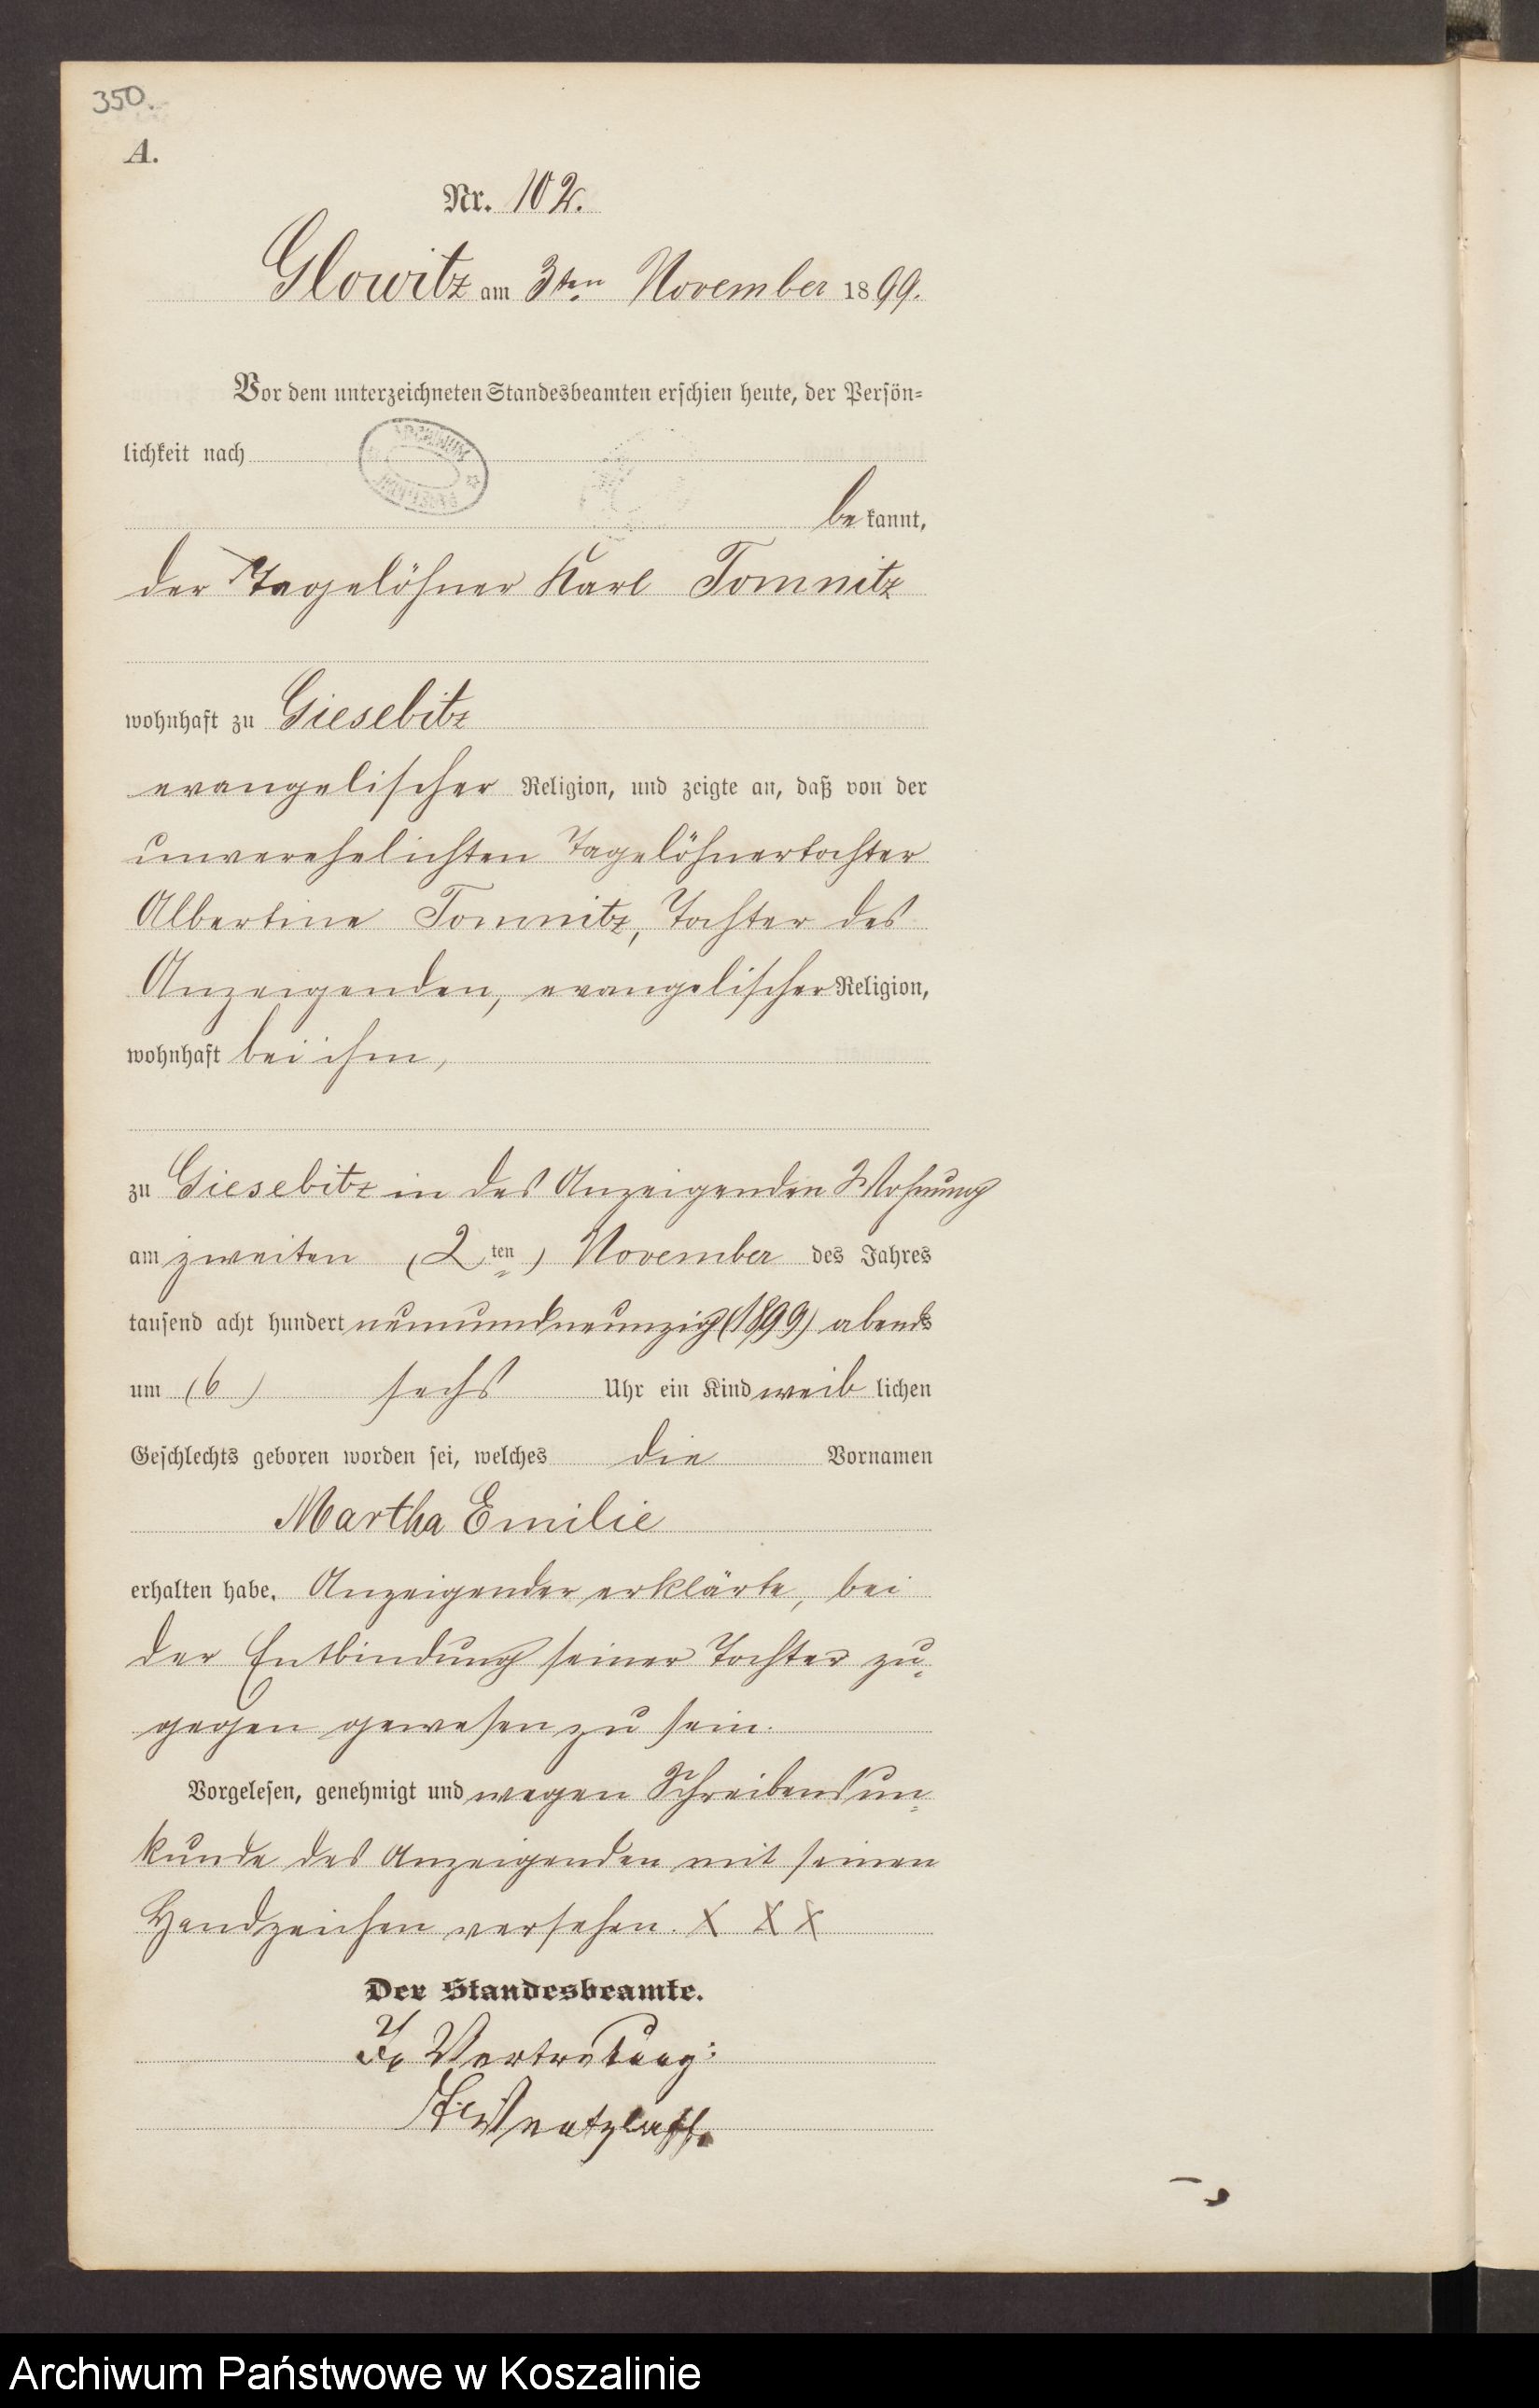 350.
A.
Nr. 102.
Glowitz am 3ten November 1899.
Vor dem unterzeichneten Standesbeamten erschien heute, der Persön=
lichkeit nach
ARCHIWUM
be kannt,
der Tagelöhner Karl Tomnitz
wohnhaft zu Giesebitz
evangelischer Religion, und zeigte an, daß von der
unverehelichten Tagelöhnertochter
Albertine Tomnitz, Tochter des
Anzeigenden, evangelischer Religion,
wohnhaft bei ihm,
zu Giesebitz in des Anzeigenden Wohnung
am zweiten (2ten) November des Jahres
tausend acht hundert neunundneunzig (1899) abends
um (6) sechs Uhr ein Kind weib lichen
Geschlechts geboren worden sei, welches die Vornamen
Martha Emilie
erhalten habe. Anzeigender erklärte, bei
der Entbindung seiner Tochter zu=
gegen gewesen zu sein.
Vorgelesen, genehmigt und wegen Schreibensun=
kunde des Anzeigenden mit seinen
Handzeichen versehen. X X X
Der Standesbeamte.
In Vertretung:
Wentzlaff.
Archiwum Państwowe w Koszalinie